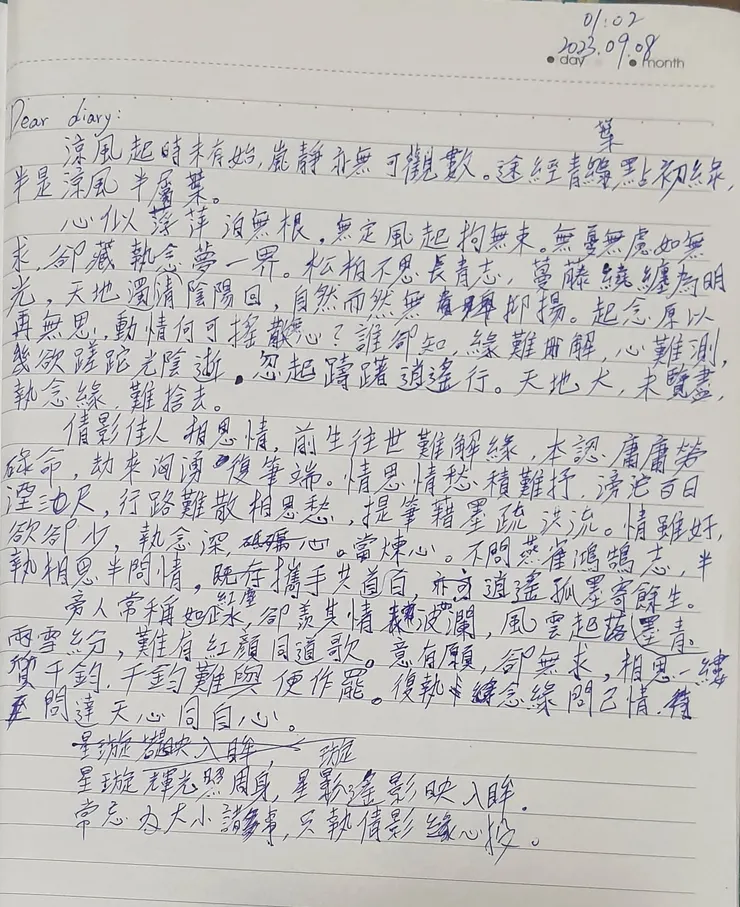 01:02
2023.09.08
day month
Dear diary:
葉
涼風起時未有始,嵐靜亦無可觀數。途經青點初綠,
半是涼風半屬葉。
心似浮萍泊無根,無定風起拘無束。無憂無慮如無
求,卻藏執念夢一界。松柏不思長青志,蔓藤繞纏為明
光,天地濁清陰陽回,自然而然無抑揚。起念原以
再無思,動情何可搖散心?誰卻知,緣難解,心難測,
幾欲蹉跎光陰逝。忽起躊躇逍遙行。天地大,未覽盡,
執念緣,難捨去。
倩影佳人相思情,前生往世難解緣,本認庸庸勞
碌命,劫來洶湧復筆端。情思情愁積難抒,滂沱百日
溼池尺,行路難散相思愁,提筆藉墨疏洪流。情雖好,
欲卻少,執念深,心。當煉心。不問燕雀鴻鵠志,半
執相思半問情,既存攜手共首白,亦逍遙孤墨寄餘生。
紅塵
旁人常稱如止水,卻羨其情波瀾,風雲起落墨青。
雨雪紛,難有紅顏同道歌。意有願,卻無求,相思一縷
質千鈞,千鈞難與便作罷。復執念緣問己情,
至問達天心同自心。
星璇映入眸,
璇
星璇輝光照周身,星遙影映入眸。
常忘為大小諸事,只執倩影緣心投。